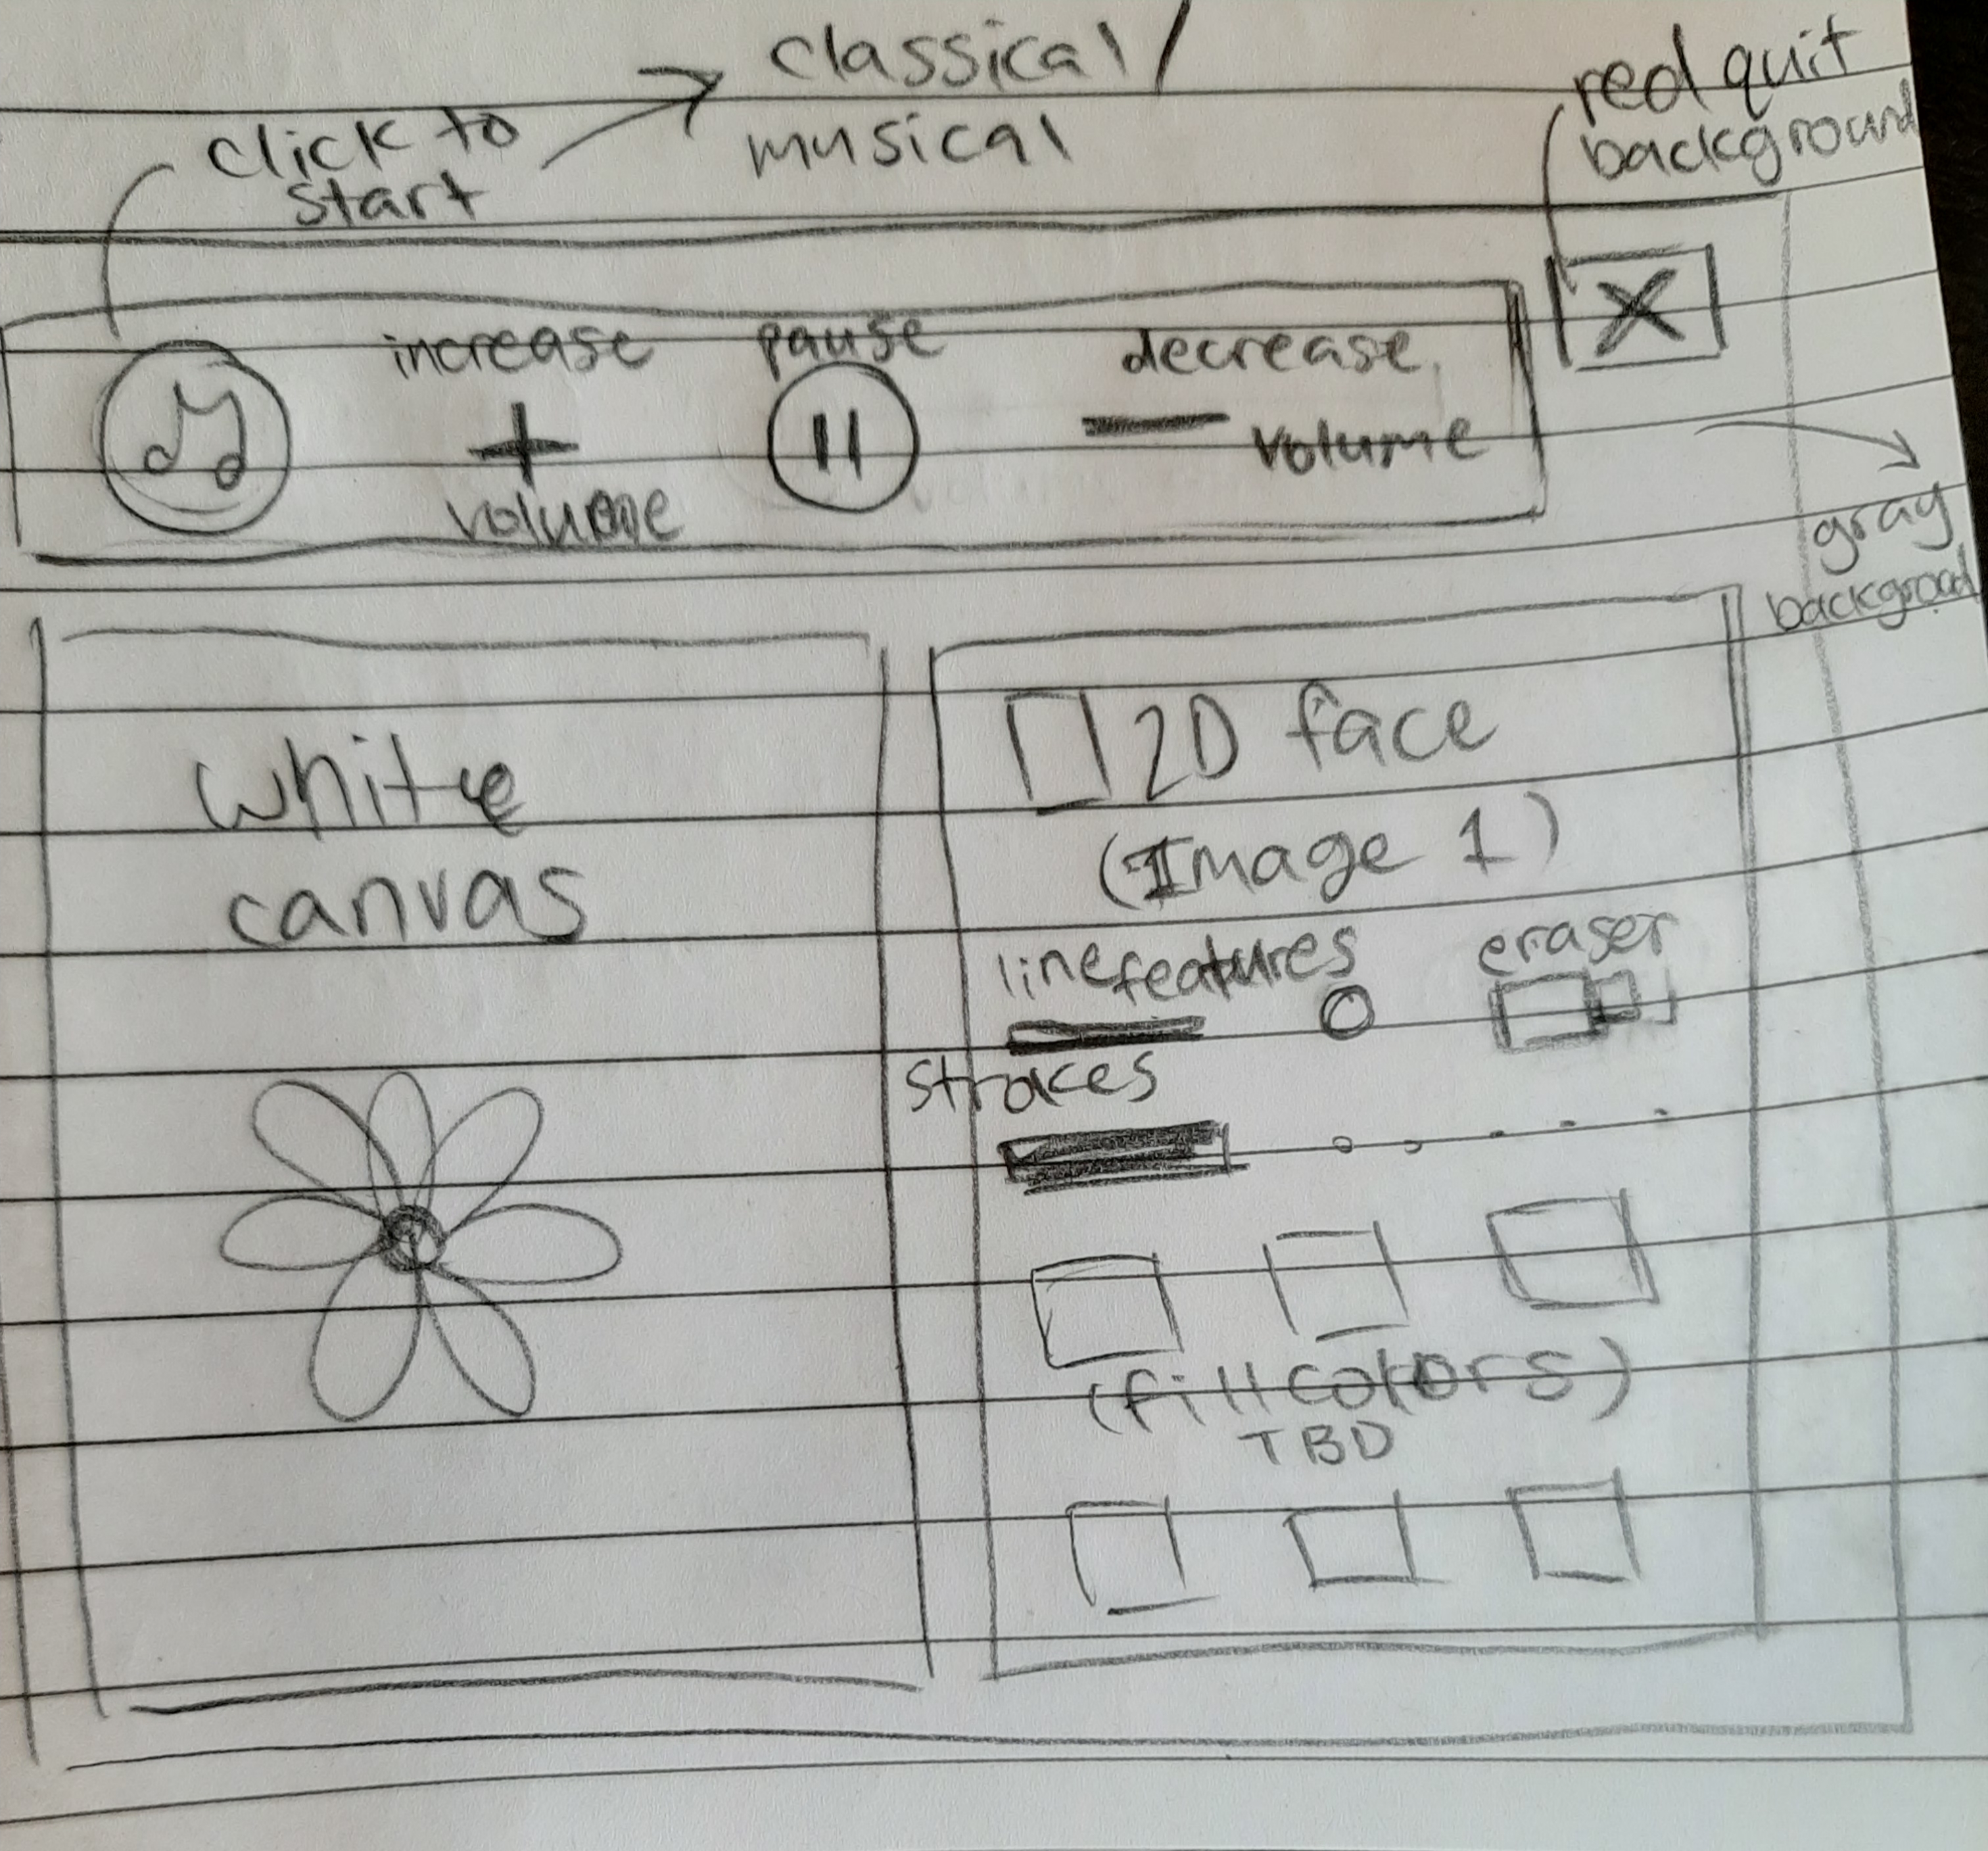 classical/
musical
click to
start
red quit
background
increase
+
volume
pause
decrease
volume
X
gray
backgroud
white
canvas
2D face
(Image 1)
line features
eraser
strokes
(fill colors)
TBD